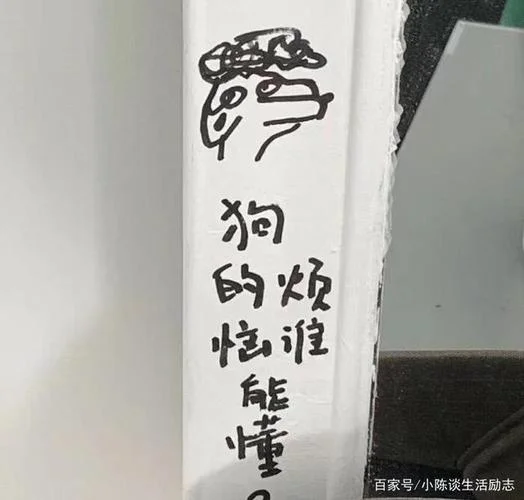 狗
的烦
恼谁
能
懂
?
百家号/小陈谈生活励志